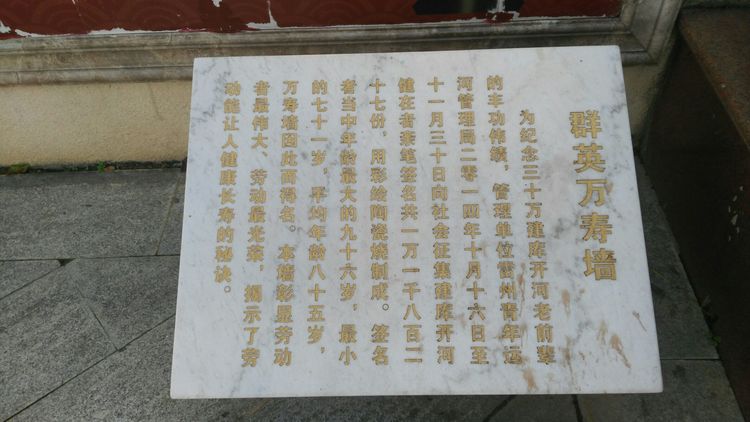 群英万寿墙
为纪念三十万建库开河老前辈
的丰功伟绩，管理单位雷州青年运
河管理局二零一四年十月十六日至
十一月三十日向社会征集建库开河
健在者亲笔签名共一万一千八百二
十七份，用彩绘陶瓷烧制成。签名
者当中年龄最大的九十六岁，最小
的七十一岁，平均年龄八十五岁，
万寿墙因此而得名。本墙彰显劳动
者最伟大、劳动最光荣，揭示了劳
动能让人健康长寿的秘诀。